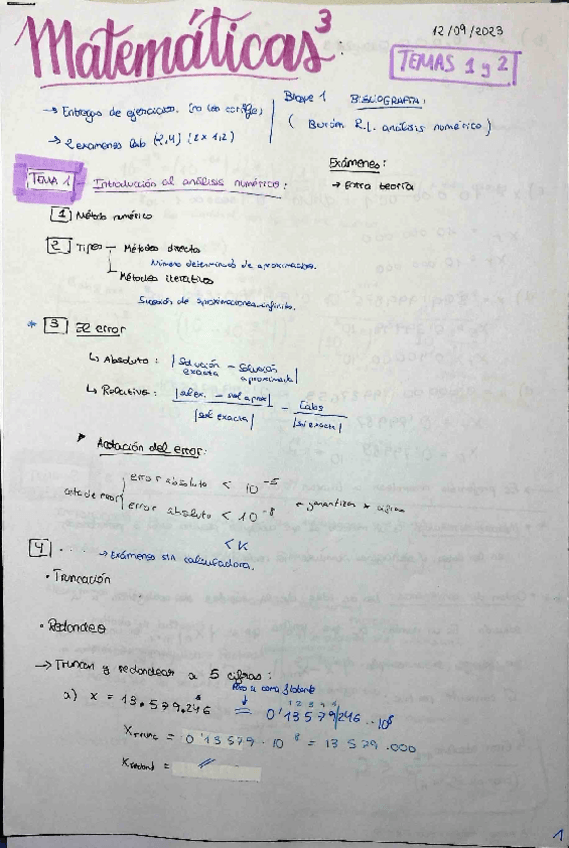 Matemáticas³
12/09/2023
TEMAS 1 y 2
→ Entregas de ejercicios. (no los corrige)
→ 2 exámenes lab (2,4) (2 x 1,2)
Bloque 1 BIBLIOGRAFÍA:
( Burden R.L. análisis numérico)
Exámenes:
→ Entra teoría
TEMA 1 - Introducción al análisis numérico:
1 Método numérico
2 Tipos - Métodos directos
Número determinado de aproximaciones.
Métodos iterativos
Sucesión de aproximaciones infinita.
* 3 El error
↳ Absoluto: | solución exacta - solución aproximada |
↳ Relativo: |sol ex. - sol aprox| / |sol exacta| = Eabs / |sol exacta|
▸ Acotación del error:
cota de error
error absoluto < 10⁻⁵
error absoluto < 10⁻⁸ garantizan * cifras
< K
4 .... → Exámenes sin calculadora.
• Truncación
• Redondeo
→ Truncar y redondear a 5 cifras:
Paso a coma flotante
a) x = 13.579.246 = 0'13579|246 · 10⁸
1 2 3 4
Xtrunc = 0'13579 · 10⁸ = 13 579 .000
Xredond = //
1